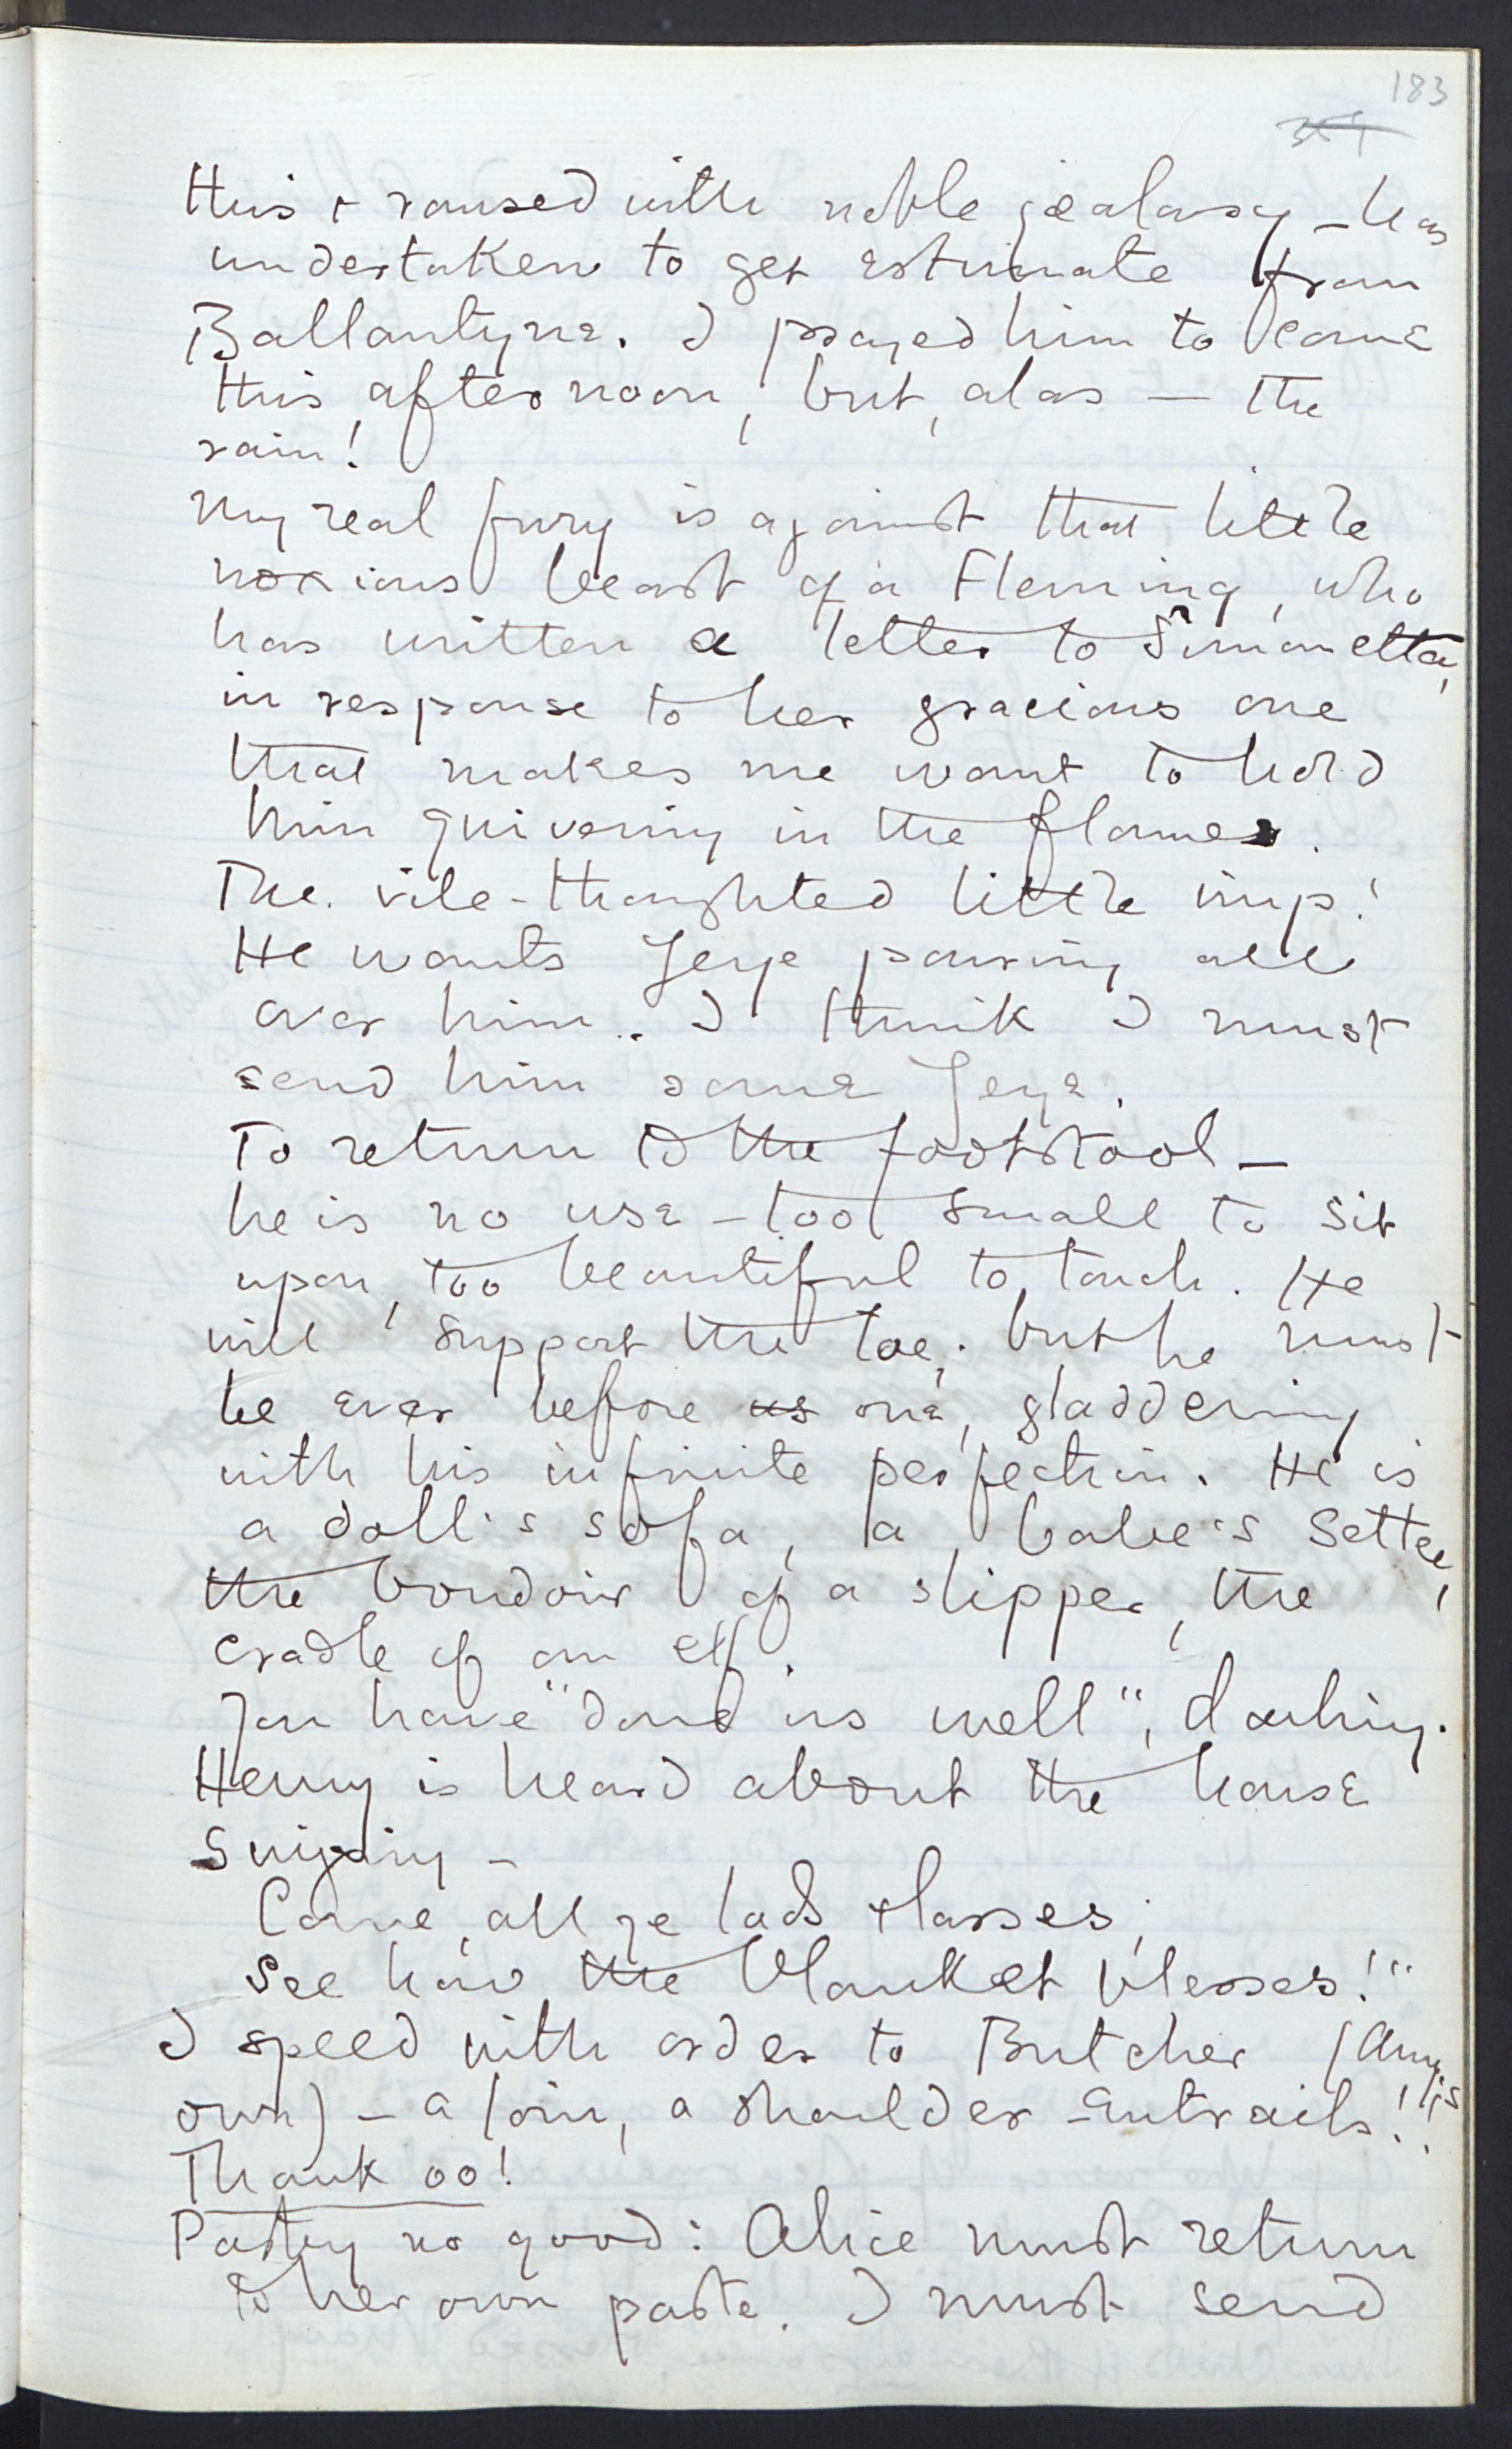 183
this & roused with noble jealousy – has
undertaken to get estimate from
Ballantyne. I prayed him to come
this afternoon, but, alas — the
rain!
My real fury is against that little
noxious beast of a Fleming, who
has written a letter to Simonetta,
in response to her gracious one
that makes me want to hold
him quivering in the flames.
The vile-thoughted little imp!
He wants Jeye pouring all
over him. I think I must
send him some Jeye.
To return to the footstool –
he is no use – too small to sit
upon, too beautiful to touch. He
will support the toe; but he must
be ever before us one, gladdening
with his infinite perfection. He is
a doll's sofa, a babe's settee,
the boudoir of a slipper, the
cradle of an elf.
You have "done us well", darling.
Henny is heard about the house
singing –
Come, all ye lads & lasses,
See how the blanket blesses!"
I speed with order to Butcher (Amy's
own) – a loin, a shoulder – Entrails!!
Thank oo!
Pastry no good: Alice must return
to her own paste. I must send